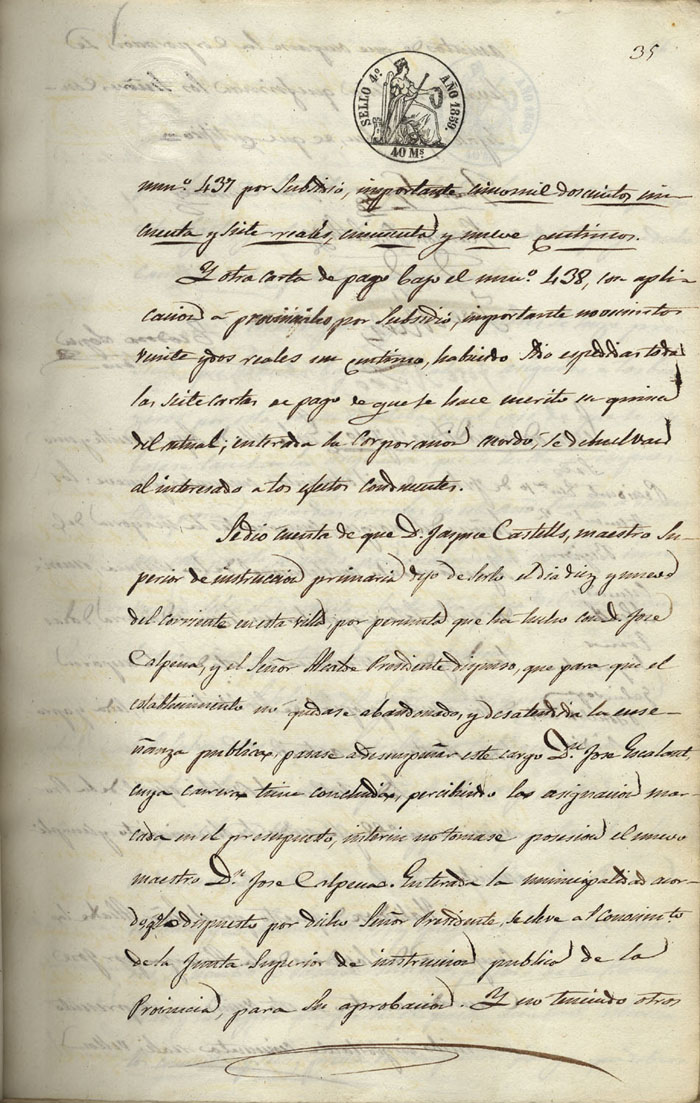 35
SELLO 4º AÑO 1859.
40 Ms
numº. 437 por Subsidio, importante cinco mil doscientos cin-
cuenta y siete reales, cincuenta y nueve centimos.
Y otra carta de pago bajo el numº. 438, con apli-
cacion a provinciales, por Subsidio, importante novecientos
veinte y dos reales un centimo, habiendo sido espedidas todas
las siete cartas de pago de que se hace merito en quince
del actual; enterada la Corporacion acordó, se debuelvan
al interesado a los efectos conducentes.
Se dio cuenta de que D. Jayme Castells, maestro Su-
perior de instruccion primaria dejo de serlo el dia diez y nueve
del corriente en esta villa, por permuta que ha hecho con D. Jose
Calpena, y el Señor Alcalde Presidente dispuso, que para que el
establecimiento no quedase abandonado, y desatendida la ense-
ñanza publica, pasase a desempeñar este cargo Dn. Jose
cuya carrera tiene concluida, percibiendo la asignacion mar-
cada en el presupuesto, interin no tomase posesion el nuevo
maestro Dn. Jose Calpena. Enterada la municipalidad acor-
dó qe. lo dispuesto por dicho Señor Presidente, se eleve al Conocimto.
de la Junta Superior de instruccion publica de la
Provincia, para su aprobacion. Y no teniendo otros